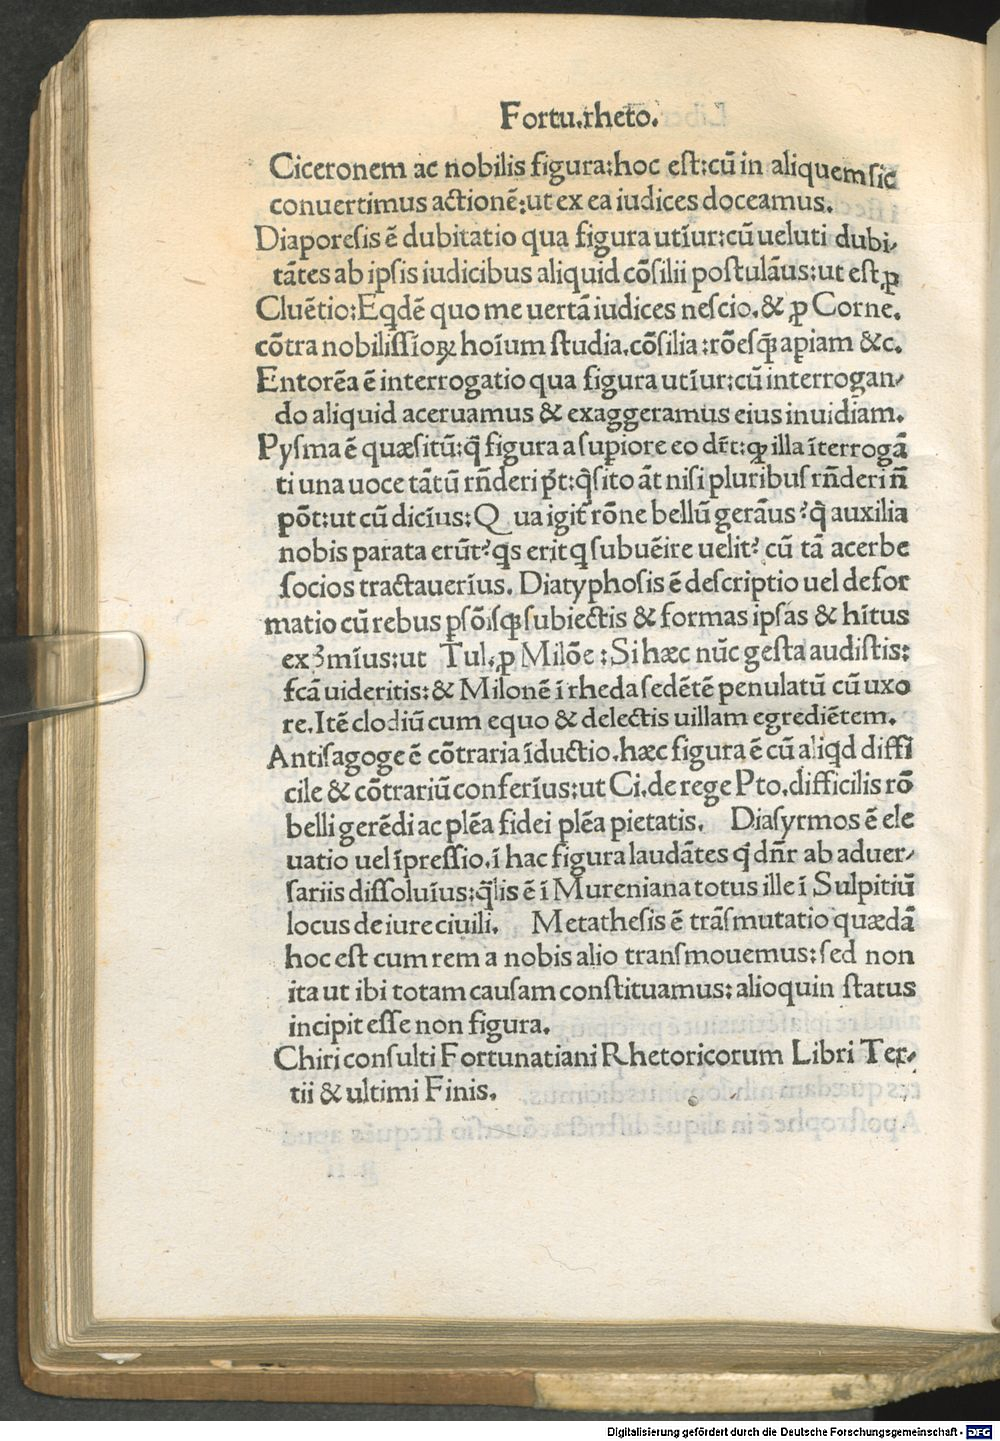 Fortu.rheto.
Ciceronem ac nobilis figura:hoc est:cū in aliquem sic
conuertimus actionē:ut ex ea iudices doceamus.
Diaporesis ē dubitatio qua figura utīur:cū ueluti dubi-
tātes ab ipsis iudicibus aliquid cōsilii postulāus:ut est ꝓ
Cluētio:Eqdē quo me uertā iudices nescio.& ꝓ Corne.
cōtra nobilissīoꝝ hoīum studia.cōsilia:rōesꝗ apiam &c.
Entorēa ē interrogatio qua figura utīur:cū interrogan-
do aliquid aceruamus & exaggeramus eius inuidiam.
Pysma ē quæsitū:q̄ figura a supiore eo dr̄t:ꝙ illa īterrogā
ti una uoce tātū rn̄deri pt:q̄sito āt nisi pluribus rn̄deri n̄
pōt:ut cū dicīus:Q ua igit rōne bellū gerāus?q̄ auxilia
nobis parata erūt?q̄s erit q subuēire uelit? cū tā acerbe
socios tractauerīus. Diatyphosis ē descriptio uel defor
matio cū rebus ꝑsōisꝗ subiectis & formas ipsas & hītus
exꝫmīus:ut Tul.ꝓ Milōe:Si hæc nūc gesta audistis:
fcā uideritis:& Milonē ī rheda sedētē penulatū cū uxo
re.Itē clodiū cum equo & delectis uillam egrediētem.
Antisagoge ē cōtraria īductio.hæc figura ē cū aliqd diffi
cile & cōtrariū conferīus:ut Ci.de rege Pto.difficilis rō
belli gerēdi ac plēa fidei plēa pietatis. Diasyrmos ē ele
uatio uel īpressio.ī hac figura laudātes q̄ dn̄r ab aduer-
sariis dissoluīus:q̄lis ē ī Mureniana totus ille ī Sulpitiū
locus de iure ciuili. Metathesis ē trāsmutatio quædā
hoc est cum rem a nobis alio transmouemus:sed non
ita ut ibi totam causam constituamus:alioquin status
incipit esse non figura.
Chiri consulti Fortunatiani Rhetoricorum Libri Ter-
tii & ultimi Finis.
Digitalisierung gefördert durch die Deutsche Forschungsgemeinschaft - DFG